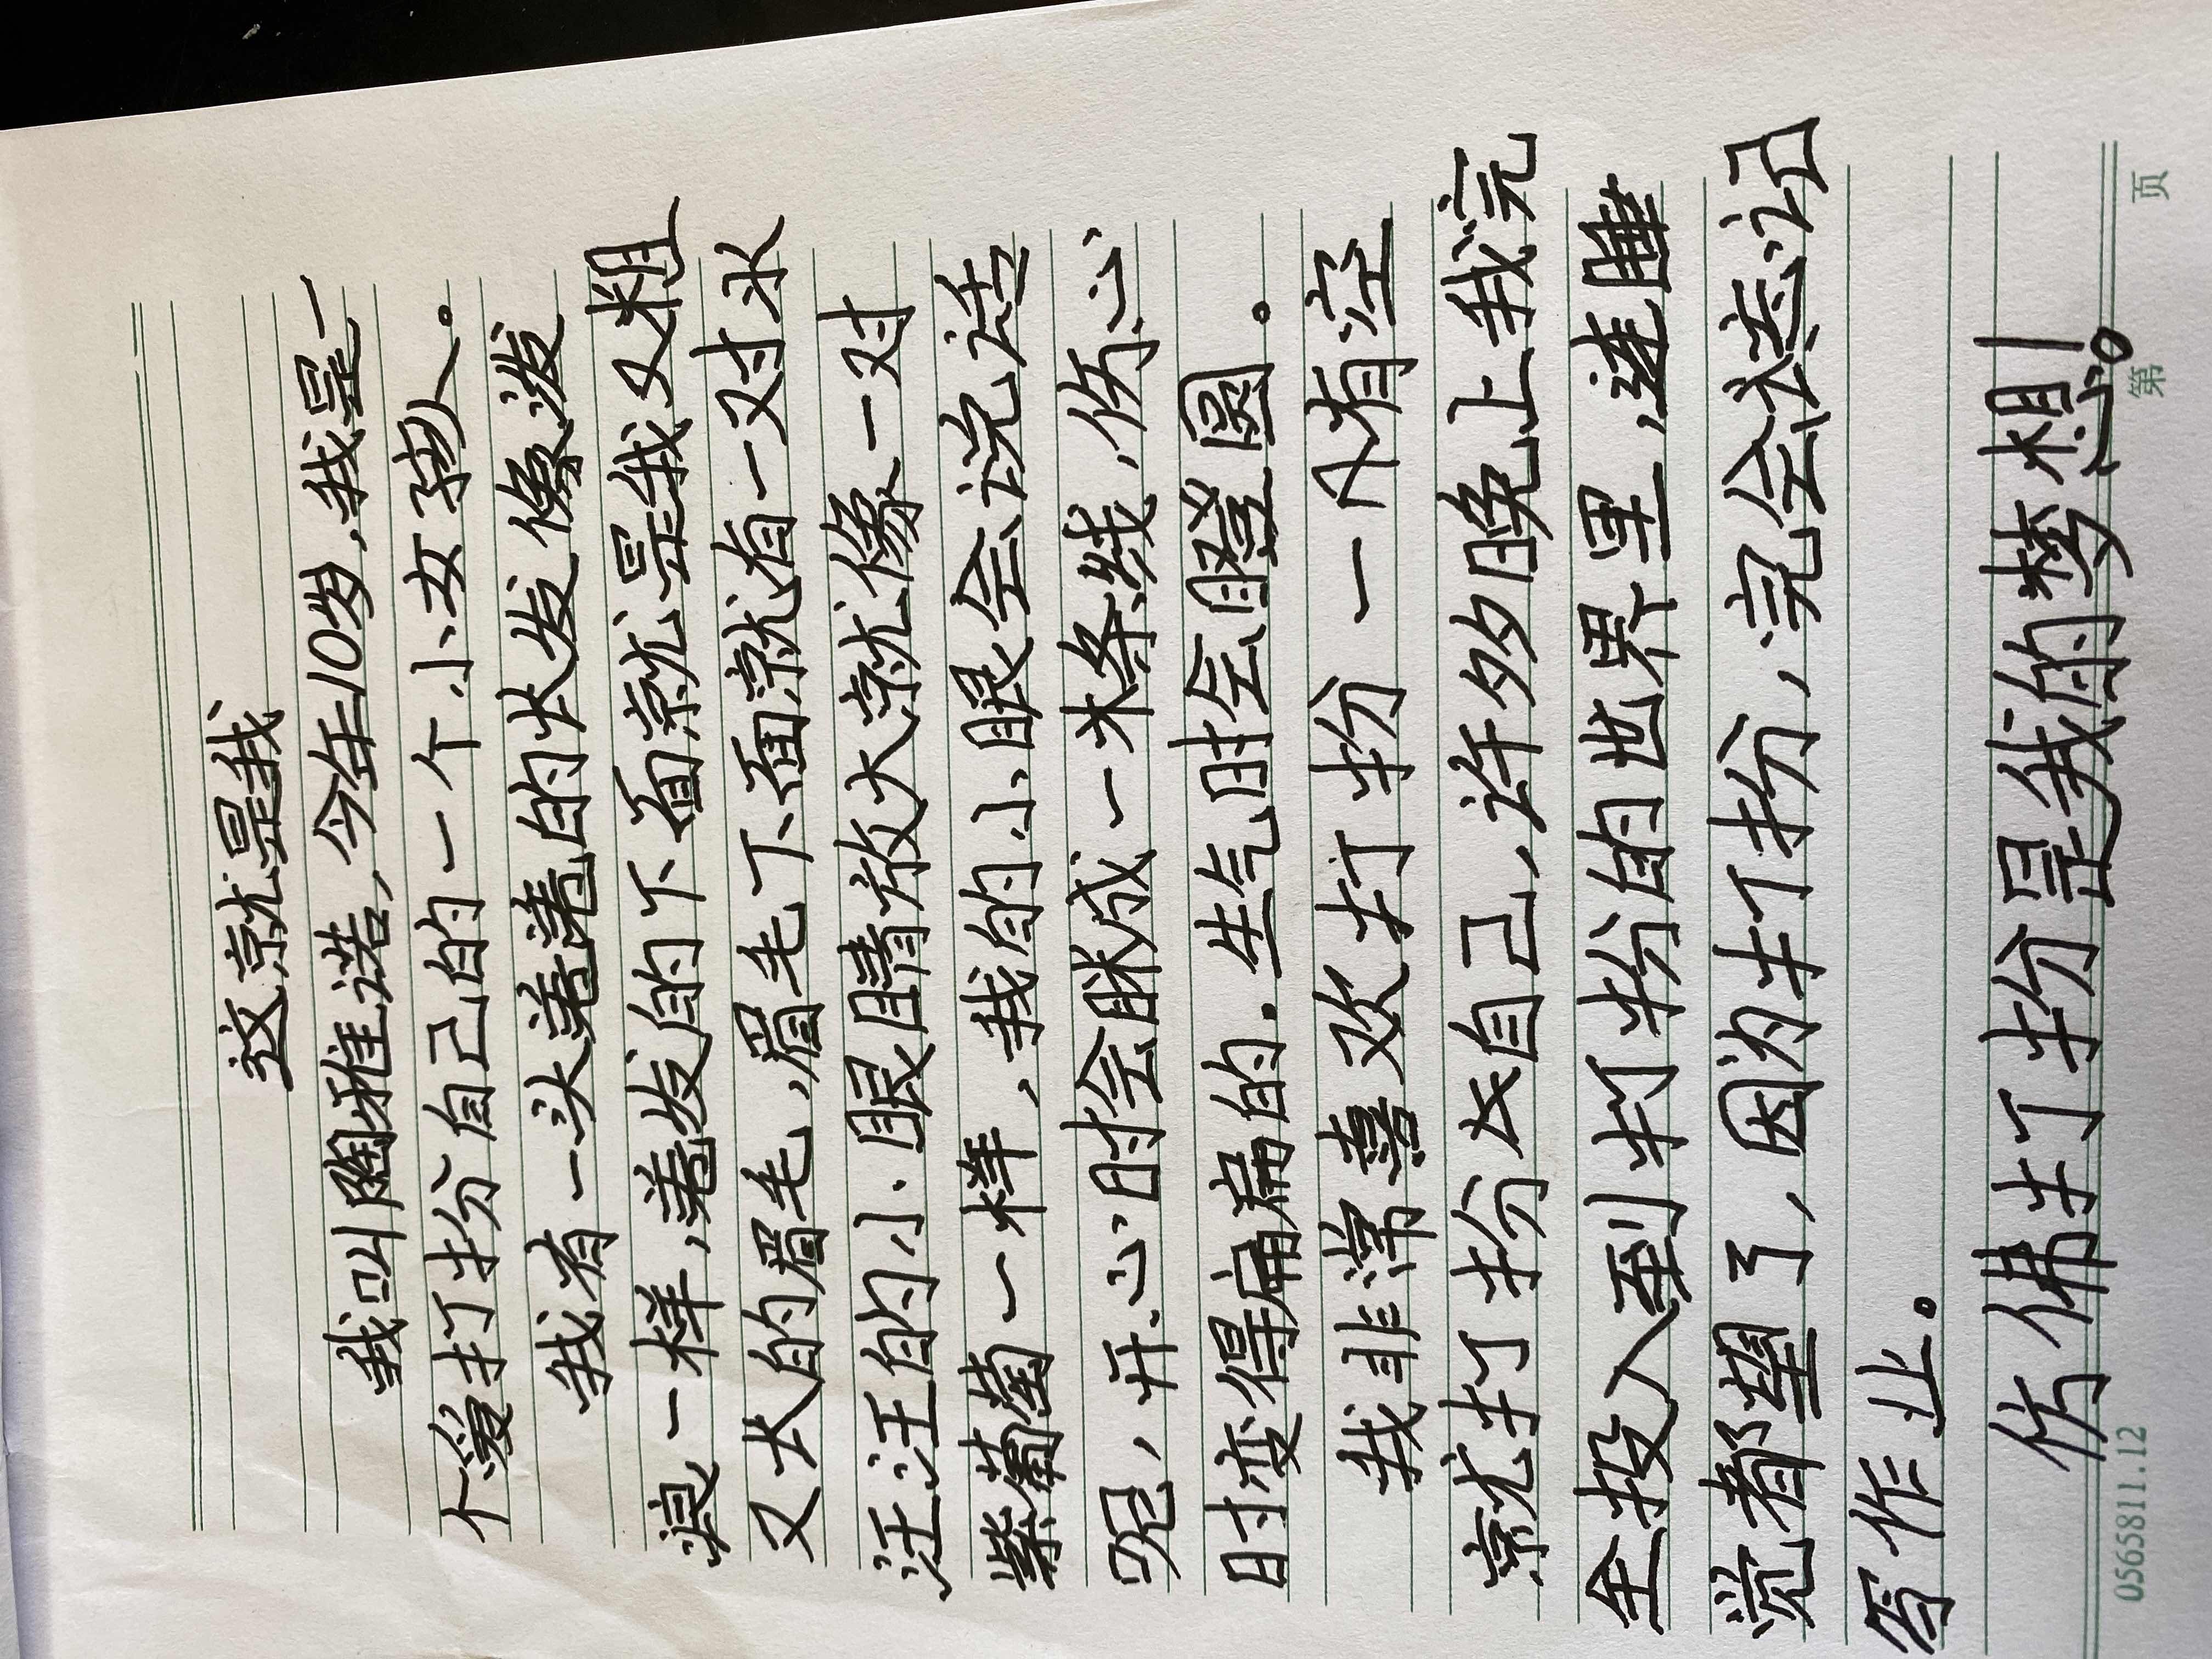 这就是我
我叫陶雅诺，今年10岁，我是一
个爱打扮自己的一个小女孩人。
我有一头善善的长发像泼
浪一样，善发的下面就是我又粗
又长的眉毛，眉毛下面就有一对水
汪汪的小眼睛放大就像一对
紫葡萄一样，我的小眼会说话
呢，开心时会眯成一条线，伤心
时变得扁扁的．生气时会瞪圆。
我非常喜欢打扮一凡有空
就打扮自己，许多晚上我完
全投入到打扮的世界里，连睡
觉都望了，因为打扮，完会忘记
写作业。
仿佛打扮是我的梦想。
0565811.12 第 页